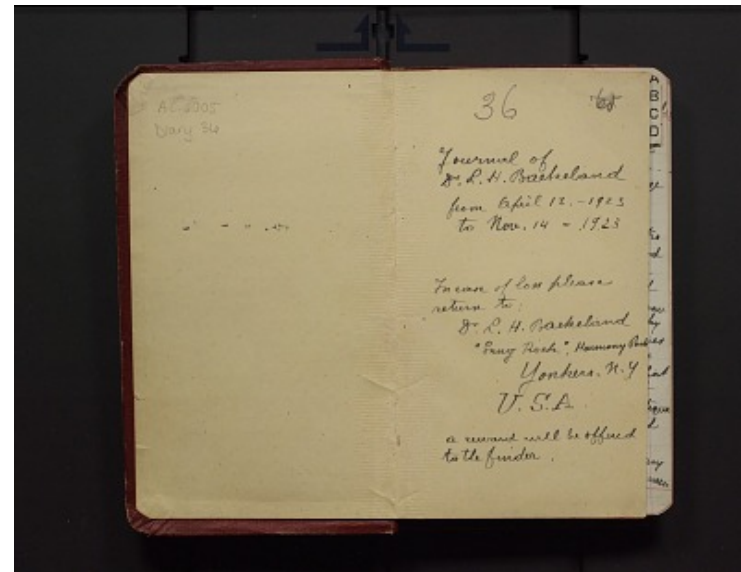 AC 0005
Diary 36
36
A
B
C
D
Journal of
Dr. L. H. Baekeland
from April 12. - 1923
to Nov. 14 - 1923
In case of loss please
return to:
Dr. L. H. Baekeland
"Snug Rock", Harmony Park
Yonkers. N.Y
U.S.A.
a reward will be offered
to the finder.